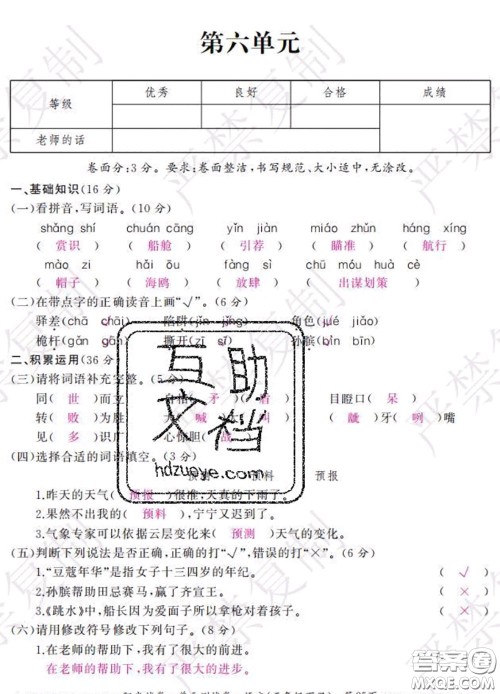 第六单元
等级 优秀 良好 合格 成绩
老师的话
卷面分:3分。要求:卷面整洁,书写规范、大小适中,无涂改。
一、基础知识(16分)
(一)看拼音,写词语。(10分)
shǎng shí chuán cāng yǐn jiàn miáo zhǔn háng xíng
(赏识) (船舱) (引荐) (瞄准) (航行)
mào zi hǎi ōu fàng sì chū móu huà cè
(帽子) (海鸥) (放肆) (出谋划策)
(二)在带点字的正确读音上画“√”。(6分)
驿差(chā chāi) 陷阱(jǐn jǐng) 角色(jué jiǎo)
桅杆(gǎn gān) 撕开(zī sī) 孙膑(bìn bīn)
二、积累运用(36分
(三)请将词语补充完整。(5分)
同(世)而立 自相(矛)(盾) 目瞪口(呆)
转(败)为胜 大(喊)(叫) (龇)牙(咧)嘴
见(多)识广 心惊胆(战)
(四)选择合适的词语填空。(3分)
预测 预料 预报
1.昨天的天气(预报)很准,天真的下雨了。
2.果然不出我的(预料),宁宁又迟到了。
3.气象专家可以依据云层变化来(预测)天气的变化。
(五)判断下列说法是否正确,正确的打“√”,错误的打“×”。(6分)
1.“豆蔻年华”是指女子十三四岁的年纪。 (√)
2.孙膑帮助田忌赛马,赢了齐宣王。 (×)
3.《跳水》中,船长因为爱面子所以拿枪对着孩子。 (×)
(六)请用修改符号修改下列句子。(8分)
1.在老师的帮助下,我有了很大的前进。
在老师的帮助下,我有了很大的进步。
互助
文档
hdzuoye.com
严禁复制
答案圈
MXQE.COM